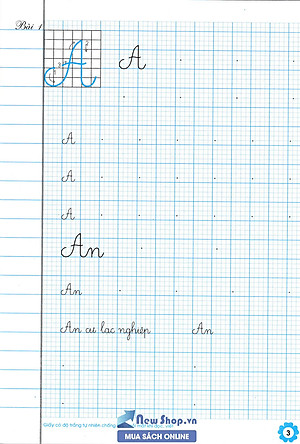 Bài 1
A A
A
A
A
An
An
An cư lạc nghiệp An
Giấy có độ trắng tự nhiên chống
New Shop.vn
MUA SÁCH ONLINE
3